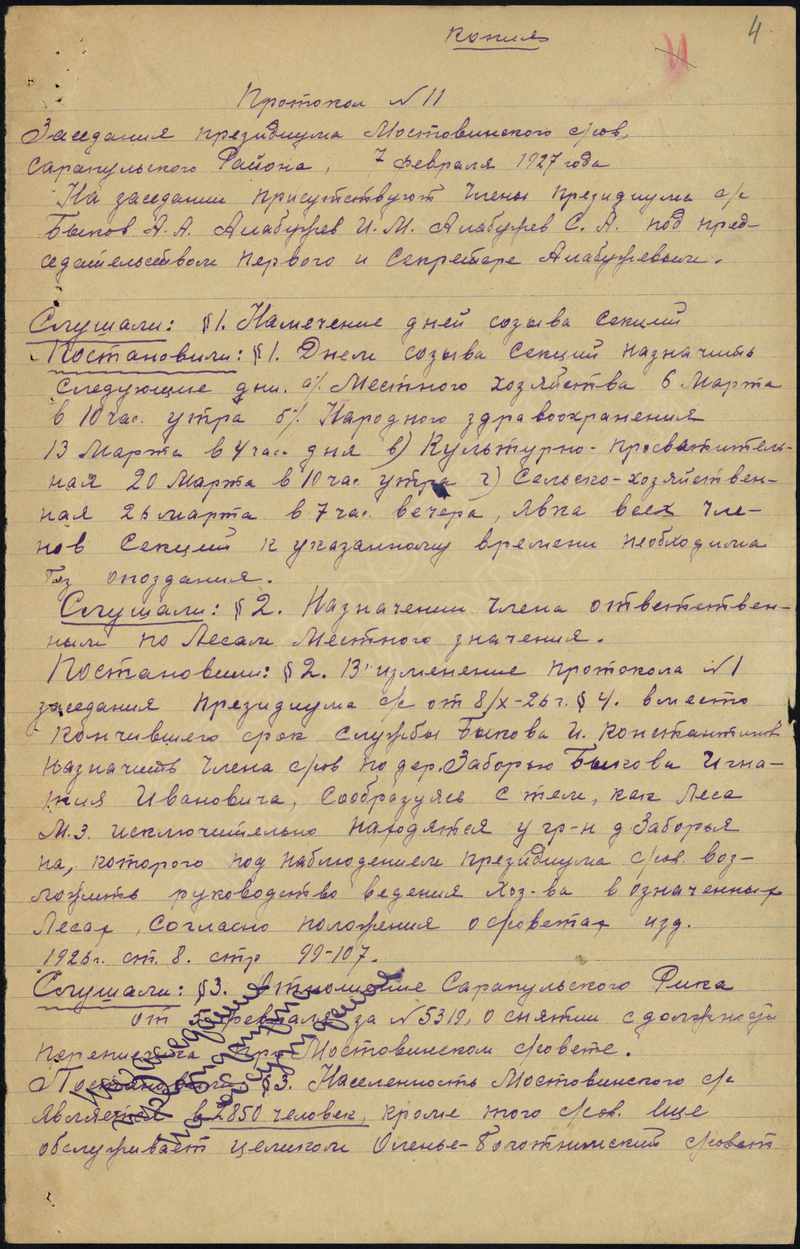 копия
4
Протокол №11
Заседания президиума Мостовинского с/сов.
Сарапульского Района, 7 февраля 1927 года
На заседании присутствуют Члены президиума с/с
Быков А.А. Алабужев И.М. Алабужев С.А. под пред-
седательством первого и Секретаре Алабужевым.
Слушали: §1. Намечение дней созыва Секций
Постановили: §1. Днем созыва Секций назначить
следующие дни. а/. Местного хозяйства 6 Марта
в 10 час. утра б/. Народного здравоохранения
13 Марта в 4 час. дня в) Культурно-просветитель-
ная 20 Марта в 10 час утра г) Сельско-хозяйствен-
ная 26 марта в 7 час. вечера, явка всех чле-
нов Секций к указанному времени необходима
без опоздания.
Слушали: §2. Назначении Члена ответствен-
ным по Лесам Местного значения.
Постановили: §2. В изменение протокола №1
заседания президиума с/с от 8/X-26 г. §4. вместо
кончившего срок службы Быкова И. Константинов
назначить Члена с/сов по дер. Заборью Быкова Игна-
тия Ивановича, Сообразуясь с тем, как Леса
М.З. исключительно находятся у гр-н д Заборья
на, которого под наблюдением президиума с/сов. воз-
ложить руководство ведения хоз-ва в означенных
Лесах, согласно положения о с/советах изд.
1926 г. ст. 8. стр 99-107.
Слушали: §3. Отношение Сарапульского Рика
от февраля за №5319, о снятии с должности
переписчика при Мостовинском с/совете.
Постановили §3. Населенность Мостовинского с/с
является в 2850 человек, кроме того с/сов. еще
обслуживает целиком Оленье-Болотнинский с/совет